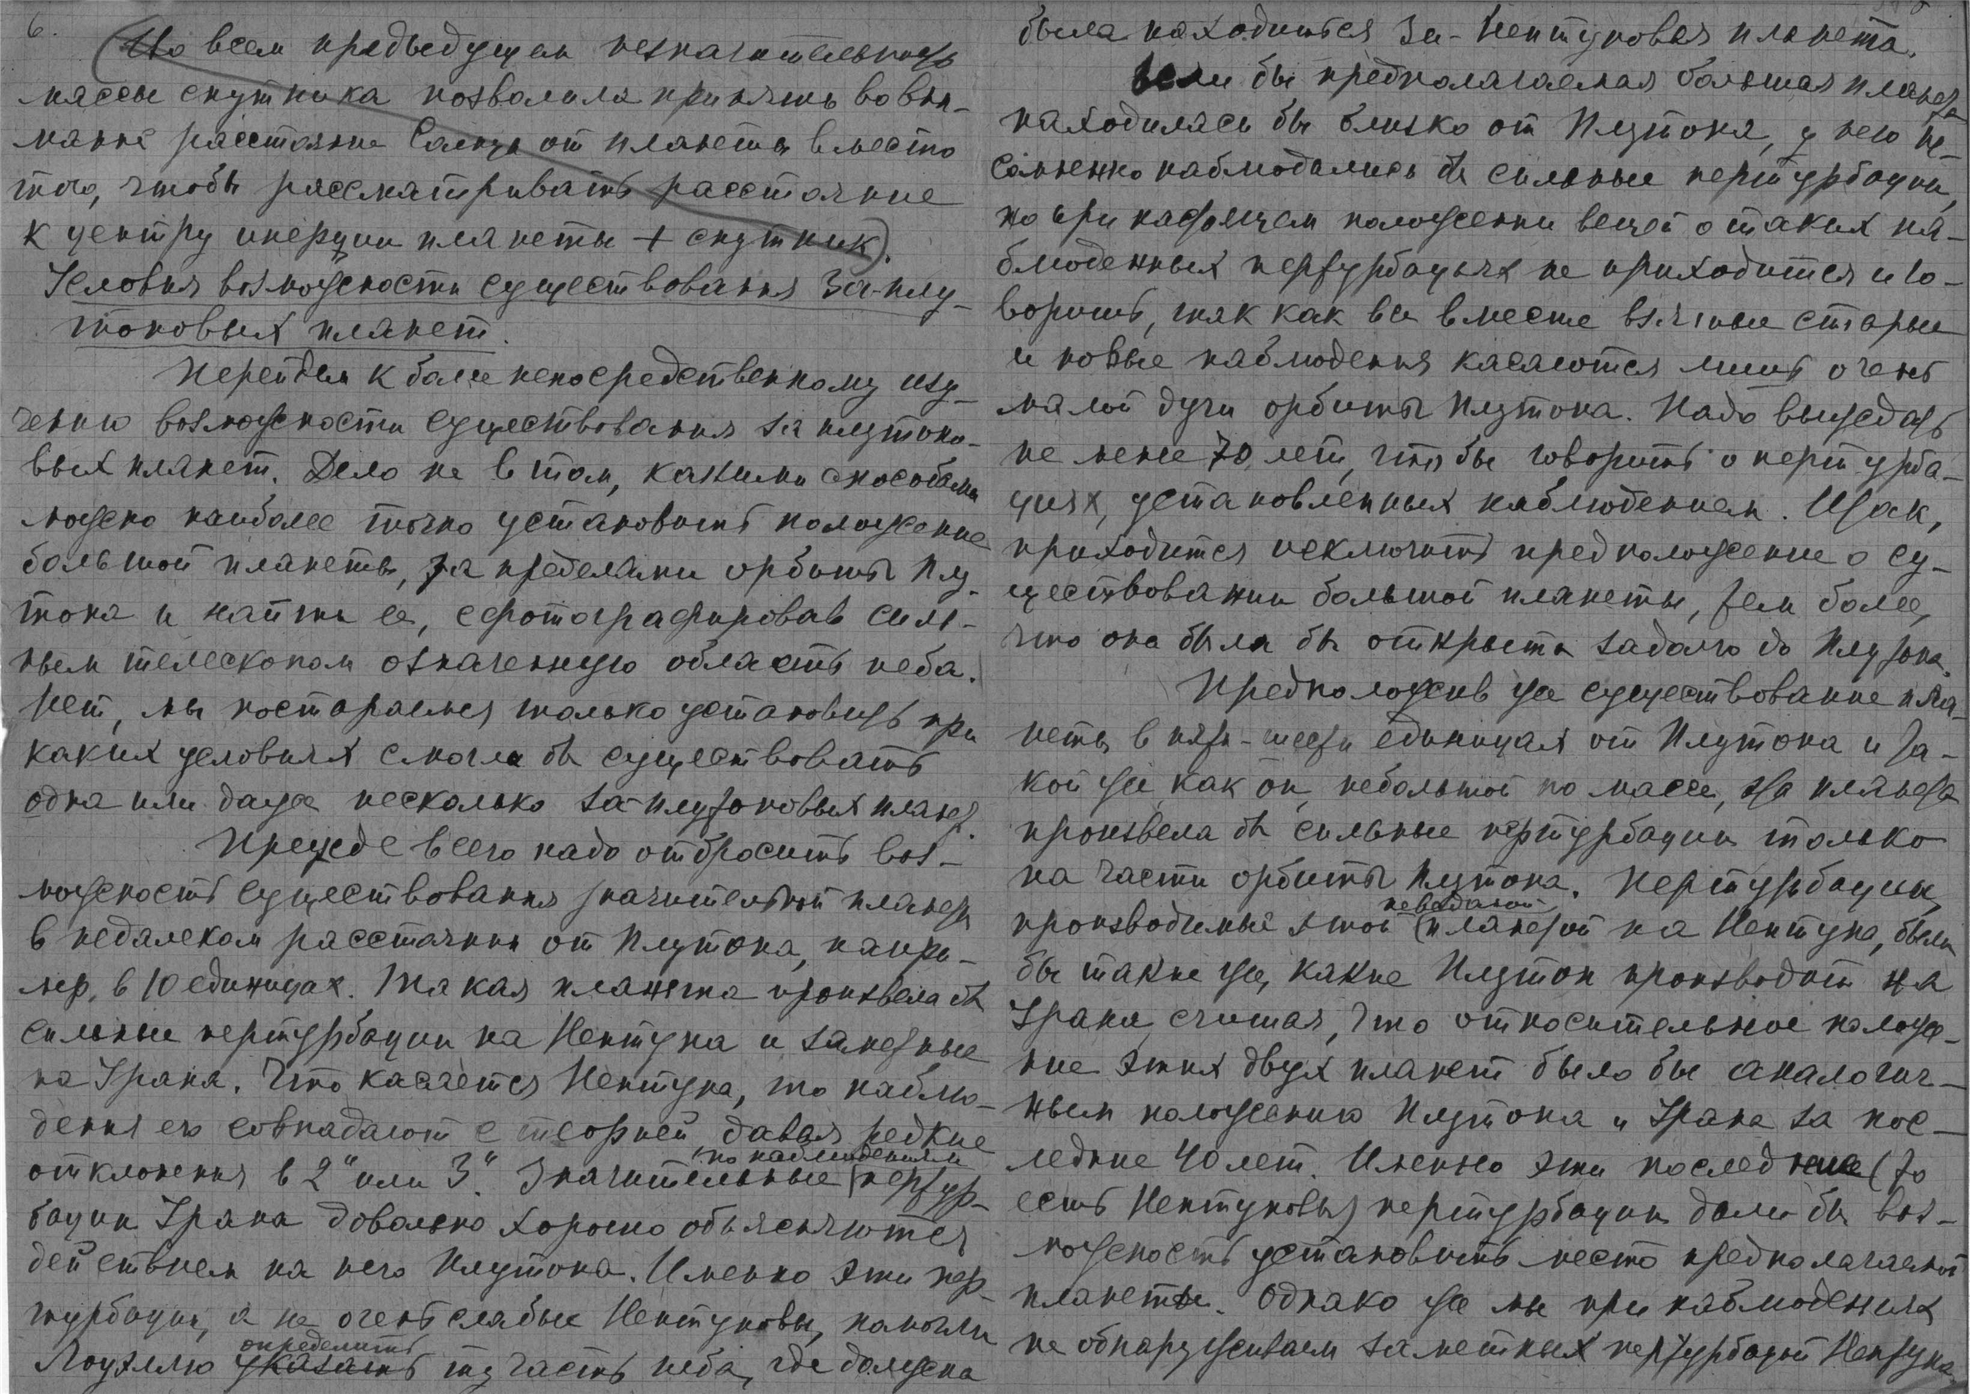 6.
Но всем предыдущем незначительность
массы спутника позволила принять во вни-
мание расстояние Солнца от планеты вместо
того, чтобы рассматривать расстояние
к центру инерции планеты + спутник).
Условия возможности существования За-плу-
тоновых планет.
Перейдем к более непосредственному изу-
чению возможности существования за плутоно-
вых планет. Дело не в том, какими способами
можно наиболее точно установить положение
большой планеты, за пределами орбиты Плу-
тона и найти ее, сфотографировав силь-
ным телескопом означенную область неба.
Нет, мы постараемся только установить при
каких условиях смогла бы существовать
одна или даже несколько за-плутоновых планет.
Прежде всего надо отбросить воз-
можность существования значительной планеты
в недалеком расстоянии от Плутона, напри-
мер, в 10 единицах. Такая планета произвела бы
сильные пертурбации на Нептуна и заметные
на Урана. Что касается Нептуна, то наблю-
дения его совпадают с теорией, давая редкие
отклонения в 2" или 3". Значительные по наблюдениям пертур-
бации Урана довольно хорошо объясняются
действием на него Плутона. Именно эти пер-
турбации, а не очень слабые Нептуновы, помогли
Лоуэллю указать определить ту часть неба, где должна
была находиться За-Нептуновая планета.
Если бы предполагаемая большая планета
находилась бы близко от Плутона, у него не-
сомненно наблюдались бы сильные пертурбации,
но при настоящем положении вещей о таких на-
блюденных пертурбациях не приходится и го-
ворить, так как все вместе взятые старые
и новые наблюдения касаются лишь очень
малой дуги орбиты Плутона. Надо выждать
не менее 70 лет, чтобы говорить о пертурба-
циях, установленных наблюдением. Итак,
приходится исключить предположение о су-
ществовании большой планеты, тем более,
что она была бы открыта задолго до Плутона.
Предположив же существование пла-
неты в пяти-шести единицах от Плутона и та-
кой же, как он, небольшой по массе, эта планета
произвела бы сильные пертурбации только
на части орбиты Плутона. Пертурбации,
производимые этой неведомой планетой на Нептуна, были
бы такие же, какие Плутон производит на
Урана, считая, что относительное положе-
ние этих двух планет было бы аналогич-
ным положению Плутона и Урана за пос-
ледние 40 лет. Именно эти последние (то
есть Нептуновы) пертурбации дали бы воз-
можность установить место предполагаемой
планеты. Однако же мы при наблюдениях
не обнаруживаем заметных пертурбаций Нептуна,